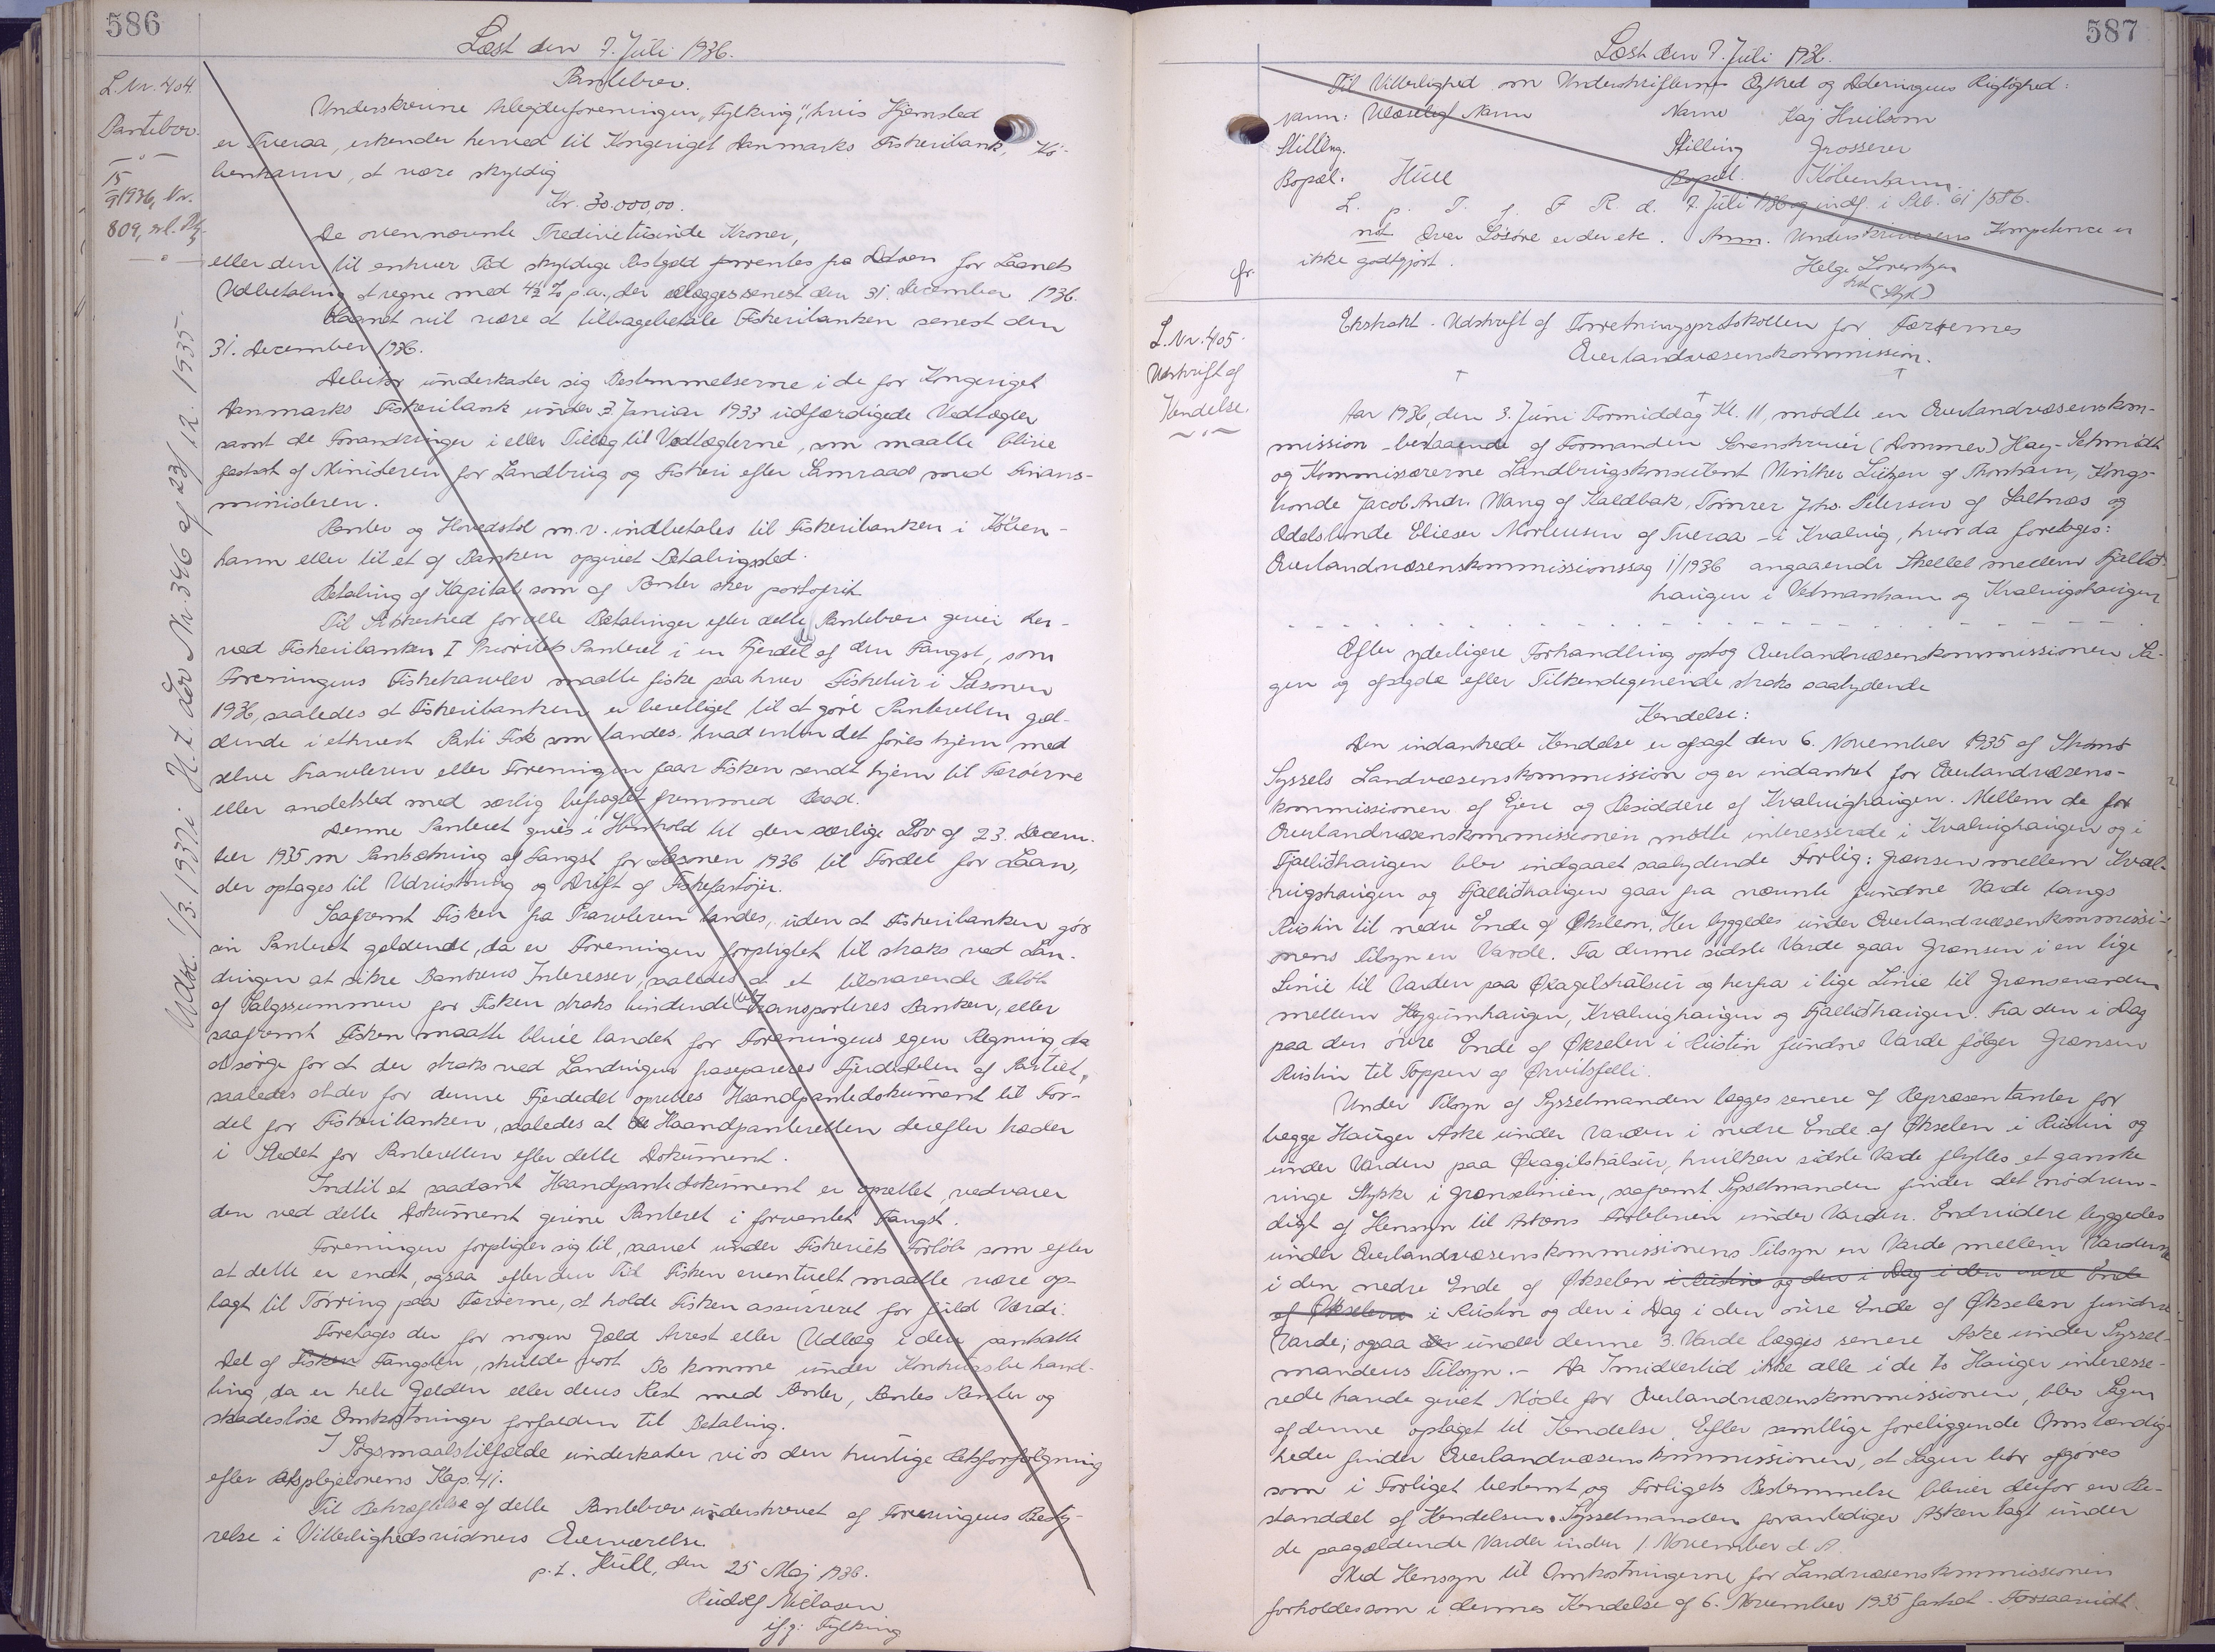 586
Læst den 7. Juli 1936.
L. Nr. 404.
Pantebrev.
15/9 1936, Nr.
809, sel. Utg.
Udsl. 1/3. 1937 i H. t. Lov Nr. 346 af 23/12. 1935.
Pantebrev.
Underskrevne Arbejderforeningen "Fylking", hvis Hjemsted
er Tveraa, erkender herved til Kongeriget Danmarks Fiskeribank, Kö-
benhavn, at være skyldig
Kr. 30.000,00.
De ovennævnte Tredivetusinde Kroner,
eller den til enhver Tid skyldige Restgæld forrentes fra Datoen for Laanets
Udbetaling at regne med 4½ % p.a., der erlægges senest den 31. December 1936.
Laanet vil være at tilbagebetale Fiskeribanken senest den
31. December 1936.
Debitor underkaster sig Bestemmelserne i de for Kongeriget
Danmarks Fiskeribank under 3. Januar 1933 udfærdigede Vedtægter
samt de Forandringer i eller Tillæg til Vedtægterne, som maatte blive
fastsat af Ministeren for Landbrug og Fiskeri efter Samraad med Finans-
ministeren.
Renter og Hovedstol m.v. indbetales til Fiskeribanken i Köben-
havn eller til et af Banken opgivet Betalingssted.
Betaling af Kapital som af Renter sker portofrit.
Til Sikkerhed for alle Betalinger efter dette Pantebrev giver her-
ved Fiskeribanken I Prioritets Panteret i en Fjerdedel af den Fangst, som
Foreningens Fisketrawler maatte fiske paa hver Fisketur i Sæsonen
1936, saaledes at Fiskeribanken er berettiget til at göre Panteretten gæl-
dende i ethvert Parti Fisk som landes, hvad enten det föres hjem med
selve Trawleren eller Foreningen faar Fisken sendt hjem til Færöerne
eller andetsted med særlig befragtet fremmed Baad.
Denne Panteret gives i Henhold til den særlige Lov af 23. Decem-
ber 1935 om Pantsætning af Fangst for Sæsonen 1936 til Fordel for Laan,
der optages til Udrustning og Drift af Fiskefartöjer.
Saafremt Fisken fra Trawleren landes, uden at Fiskeribanken gör
sin Panteret gældende, da er Foreningen forpligtet til straks ved Lan-
dingen at sikre Bankens Interesser, saaledes at et tilsvarende Belöb
af Salgssummen for Fisken straks bindende transporteres Banken, eller
saafremt Fisken maatte blive landet for Foreningens egen Regning, da
at sörge for at der straks ved Landingen frasepareres Fjerdedelen af Partiet,
saaledes at der for denne Fjerdedel oprettes Haandpantedokument til For-
del for Fiskeribanken, saaledes at Haandpanteretten derefter træder
i Stedet for Panteretten efter dette Dokument.
Indtil et saadant Haandpantedokument er oprettet, vedvarer
den ved dette Dokument givne Panteret i forventet Fangst.
Foreningen forpligter sig til, saavel under Fiskeriets Forlöb som efter
at dette er endt, ogsaa efter den Tid Fisken eventuelt maatte være op-
lagt til Törring paa Færöerne, at holde Fisken assureret for fuld Værdi.
Foretages der for nogen Gæld Arrest eller Udlæg i den pantsatte
Del af Fisken Fangsten, skulde vort Bo komme under Konkursbehand-
ling, da er hele Gælden eller dens Rest med Renter, Rentes Renter og
skadeslöse Omkostninger forfalden til Betaling.
I Søgsmaalstilfælde underkaster vi os den hurtige Retsforfölgning
efter Retsplejelovens Kap. 41.
Til Bekræftelse af dette Pantebrev underskrevet af Foreningens Besty-
relse i Vitterlighedsvidners Overværelse.
p.t. Hull, den 25 Maj 1936.
Rudolf Nielasen
if.g: Fylking
587
Læst den 7. Juli 1936.
Til Vitterlighed om Underskrifternes Ægthed og Dateringens Rigtighed:
Navn: Ulæselig Navn Navn Kaj Hvilsom
Stilling. Stilling Grosserer
Bopæl: Hull Bopæl. Köbenhavn.
L. p. T. f. F R. d. 7. Juli 1936 og indf. i Ptb. 61/586.
not Over Lösöre er der etc. Anm. Underskriverens Kompetence er
fr. ikke godtgjort.
Helge Lorentzen
hst (Styk)
L. Nr. 405.
Udskrift af
Kendelse.
Ekstrakt-Udskrift af Forretningsprotokollen for Færöernes
Overlandvæsenskommission.
Aar 1936, den 3. Juni Formiddag Kl. 11, mødte en Overlandvæsenskom-
mission - bestaaende af Formanden Sorenskriver (Dommer) Høy-Schmidt
og Kommissærerne Landbrugskonsulent Winther Lützen af Thorshavn, Kongs-
bonde Jacob Andr. Wang af Kaldbak, Tømrer Johs. Petersen af Saltnæs og
Odelsbonde Elieser Mortensen af Tveraa - i Kvalvig, hvor da foretoges:
Overlandvæsenskommissionssag 1/1936 angaaende Skellet mellem Fjallid-
haugen i Vestmanhavn og Kvalvigshaugen
Efter yderligere Forhandling optog Overlandvæsenskommissionen Sa-
gen og afsagde efter Tilkendegivende straks saalydende
Kendelse:
Den indankede Kendelse er afsagt den 6. November 1935 af Strømø
Syssels Landvæsenskommission og er indanket for Overlandvæsens-
kommissionen af Ejere og Besiddere af Kvalvighaugen. Mellem de for
Overlandvæsenskommissionen mødte interesserede i Kvalvighaugen og i
Fjallidhaugen blev indgaaet saalydende Forlig: Grænsen mellem Kval-
vigshaugen og Fjallidhaugen gaar fra nævnte fundne Varde langs
Rustin til nedre Ende af Økslen, Her byggedes under Overlandvæsenkommissi-
onens Tilsyn en Varde. Fra denne sidste Varde gaar Grænsen i en lige
Linie til Varden paa Øxagilshálsur og herfra i lige Linie til Grænsevarden
mellem Heygumhaugen, Kvalvighaugen og Fjallidhaugen. Fra den i Dag
paa den övre Ende af Økselen i Rustin fundne Varde følger Grænsen
Rustin til Toppen af Ørvitsfelli.
Under Tilsyn af Sysselmanden lægges senere af Repræsentanter for
begge Hauger Aske under Varden i nedre Ende af Økselen i Rustin og
under Varden paa Øxagilshálsur, hvilken sidste Varde flyttes et ganske
ringe Stykke i Grænselinien, saafremt Sysselmanden finder det nødven-
digt af Hensyn til Askens Forbliven under Varden. Endvidere byggedes
under Overlandvæsenskommissionens Tilsyn en Varde mellem Varderne
i den nedre Ende af Økselen i Rustin og den i Dag i den övre Ende
af Økselen i Rustin og den i Dag i den övre Ende af Økselen fundne
Varde; ogsaa under denne 3. Varde lægges senere Aske under Syssel-
mandens Tilsyn. - Da Imidlertid ikke alle i de to Hauger interesse-
rede havde givet Møde for Overlandvæsenskommissionen, blev Sagen
af denne optaget til Kendelse. Efter samtlige foreliggende Omstændig-
heder finder Overlandvæsenskommissionen, at Sagen bør afgøres
som i Forliget bestemt, og Forligets Bestemmelse bliver derfor en Be-
standdel af Kendelsen. Sysselmanden foranlediger Asken lagt under
de paagældende Varder inden 1. November d. A.
Med Hensyn til Omkostningerne for Landvæsenskommissionen
forholdes som i dennes Kendelse af 6. November 1935 fastsat. Forsaavidt